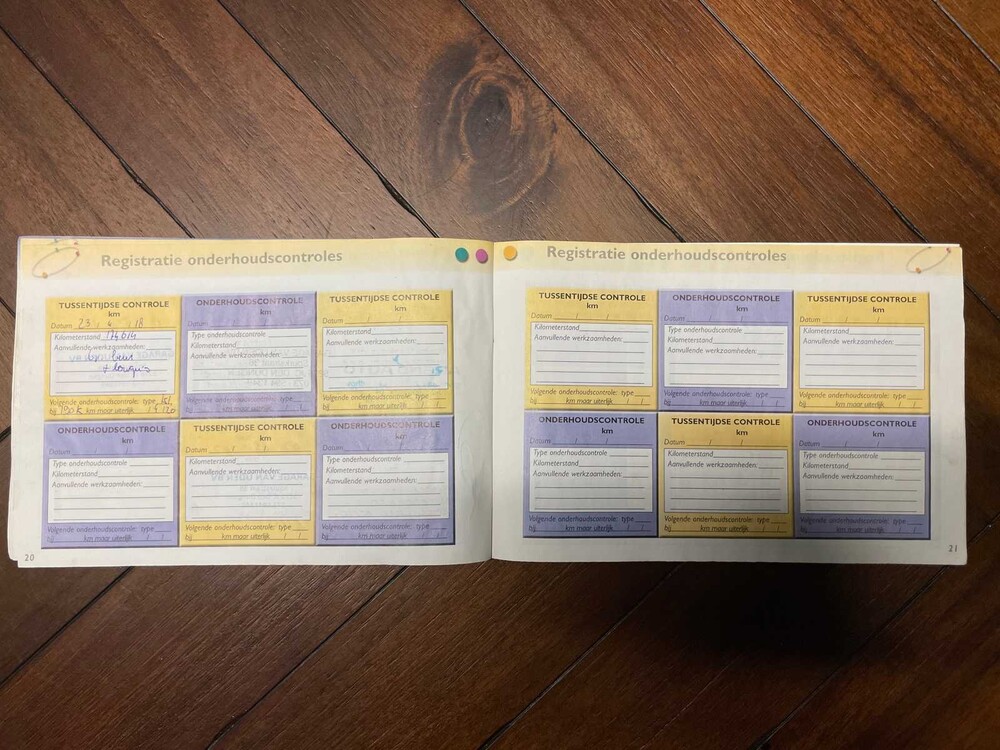 Registratie onderhoudscontroles
TUSSENTIJDSE CONTROLE
km
Datum 23 / / 18
Kilometerstand
Aanvullende werkzaamheden:
Volgende onderhoudscontrole: type
bij 190K km maar uiterlijk / /
ONDERHOUDSCONTROLE
km
Datum / /
Type onderhoudscontrole
Kilometerstand
Aanvullende werkzaamheden:
Volgende onderhoudscontrole: type
bij km maar uiterlijk / /
TUSSENTIJDSE CONTROLE
km
Datum / /
Kilometerstand
Aanvullende werkzaamheden:
Volgende onderhoudscontrole: type
bij km maar uiterlijk / /
ONDERHOUDSCONTROLE
km
Datum / /
Type onderhoudscontrole
Kilometerstand
Aanvullende werkzaamheden:
Volgende onderhoudscontrole: type
bij km maar uiterlijk / /
TUSSENTIJDSE CONTROLE
km
Datum / /
Kilometerstand
Aanvullende werkzaamheden:
Volgende onderhoudscontrole: type
bij km maar uiterlijk / /
ONDERHOUDSCONTROLE
km
Datum / /
Type onderhoudscontrole
Kilometerstand
Aanvullende werkzaamheden:
Volgende onderhoudscontrole: type
bij km maar uiterlijk / /
20
Registratie onderhoudscontroles
TUSSENTIJDSE CONTROLE
km
Datum / /
Kilometerstand
Aanvullende werkzaamheden:
Volgende onderhoudscontrole: type
bij km maar uiterlijk / /
ONDERHOUDSCONTROLE
km
Datum / /
Type onderhoudscontrole
Kilometerstand
Aanvullende werkzaamheden:
Volgende onderhoudscontrole: type
bij km maar uiterlijk / /
TUSSENTIJDSE CONTROLE
km
Datum / /
Kilometerstand
Aanvullende werkzaamheden:
Volgende onderhoudscontrole: type
bij km maar uiterlijk / /
ONDERHOUDSCONTROLE
km
Datum / /
Type onderhoudscontrole
Kilometerstand
Aanvullende werkzaamheden:
Volgende onderhoudscontrole: type
bij km maar uiterlijk / /
TUSSENTIJDSE CONTROLE
km
Datum / /
Kilometerstand
Aanvullende werkzaamheden:
Volgende onderhoudscontrole: type
bij km maar uiterlijk / /
ONDERHOUDSCONTROLE
km
Datum / /
Type onderhoudscontrole
Kilometerstand
Aanvullende werkzaamheden:
Volgende onderhoudscontrole: type
bij km maar uiterlijk / /
21